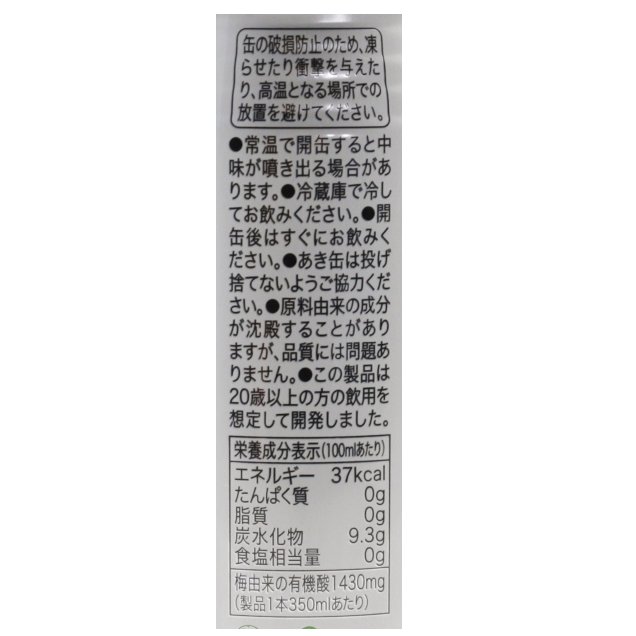 缶の破損防止のため、凍
らせたり衝撃を与えた
り、高温となる場所での
放置を避けてください。
●常温で開缶すると中
味が噴き出る場合があ
ります。●冷蔵庫で冷し
てお飲みください。●開
缶後はすぐにお飲みく
ださい。●あき缶は投げ
捨てないようご協力くだ
さい。●原料由来の成分
が沈殿することがあり
ますが、品質には問題あ
りません。●この製品は
20歳以上の方の飲用を
想定して開発しました。
栄養成分表示(100mlあたり)
エネルギー 37kcal
たんぱく質 0g
脂質 0g
炭水化物 9.3g
食塩相当量 0g
梅由来の有機酸1430mg
(製品1本350mlあたり)